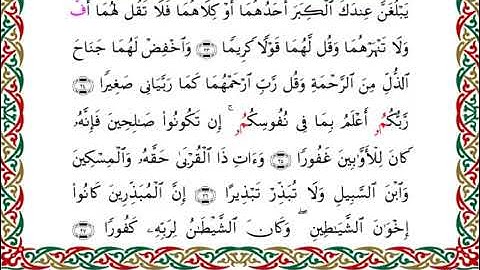 يَبْلُغَنَّ عِندَكَ ٱلْكِبَرَ أَحَدُهُمَآ أَوْ كِلَاهُمَا فَلَا تَقُل لَّهُمَآ أُفَّ
وَلَا تَنْهَرْهُمَا وَقُل لَّهُمَا قَوْلًا كَرِيمًا ٢٣ وَٱخْفِضْ لَهُمَا جَنَاحَ
ٱلذُّلِّ مِنَ ٱلرَّحْمَةِ وَقُل رَّبِّ ٱرْحَمْهُمَا كَمَا رَبَّيَانِى صَغِيرًا ٢٤
رَّبُّكُمُۥ أَعْلَمُ بِمَا فِى نُفُوسِكُمُۥ ۚ إِن تَكُونُوا۟ صَـٰلِحِينَ فَإِنَّهُۥ
كَانَ لِلْأَوَّٰبِينَ غَفُورًا ٢٥ وَءَاتِ ذَا ٱلْقُرْبَىٰ حَقَّهُۥ وَٱلْمِسْكِينَ
وَٱبْنَ ٱلسَّبِيلِ وَلَا تُبَذِّرْ تَبْذِيرًا ٢٦ إِنَّ ٱلْمُبَذِّرِينَ كَانُوٓا۟
إِخْوَٰنَ ٱلشَّيَـٰطِينِ ۖ وَكَانَ ٱلشَّيْطَـٰنُ لِرَبِّهِۦ كَفُورًا ٢٧